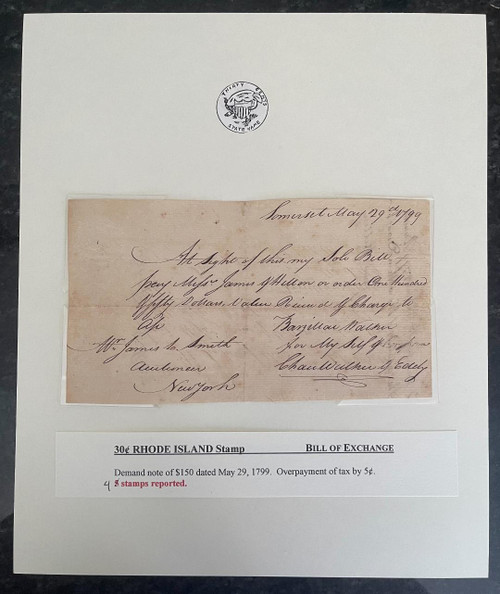 THIRTY CENTS
STATE NAME
Somerset May 29th 1799
At Sight of this my Solo Bill
pay Messrs James & Hilton or order One Hundred
& fifty Dollars Value & Charge to
Barzillai Walker
Mr. James Smith for My Self &
Auctioneer
New York
30¢ RHODE ISLAND Stamp BILL OF EXCHANGE
Demand note of $150 dated May 29, 1799. Overpayment of tax by 5¢.
4 5 stamps reported.